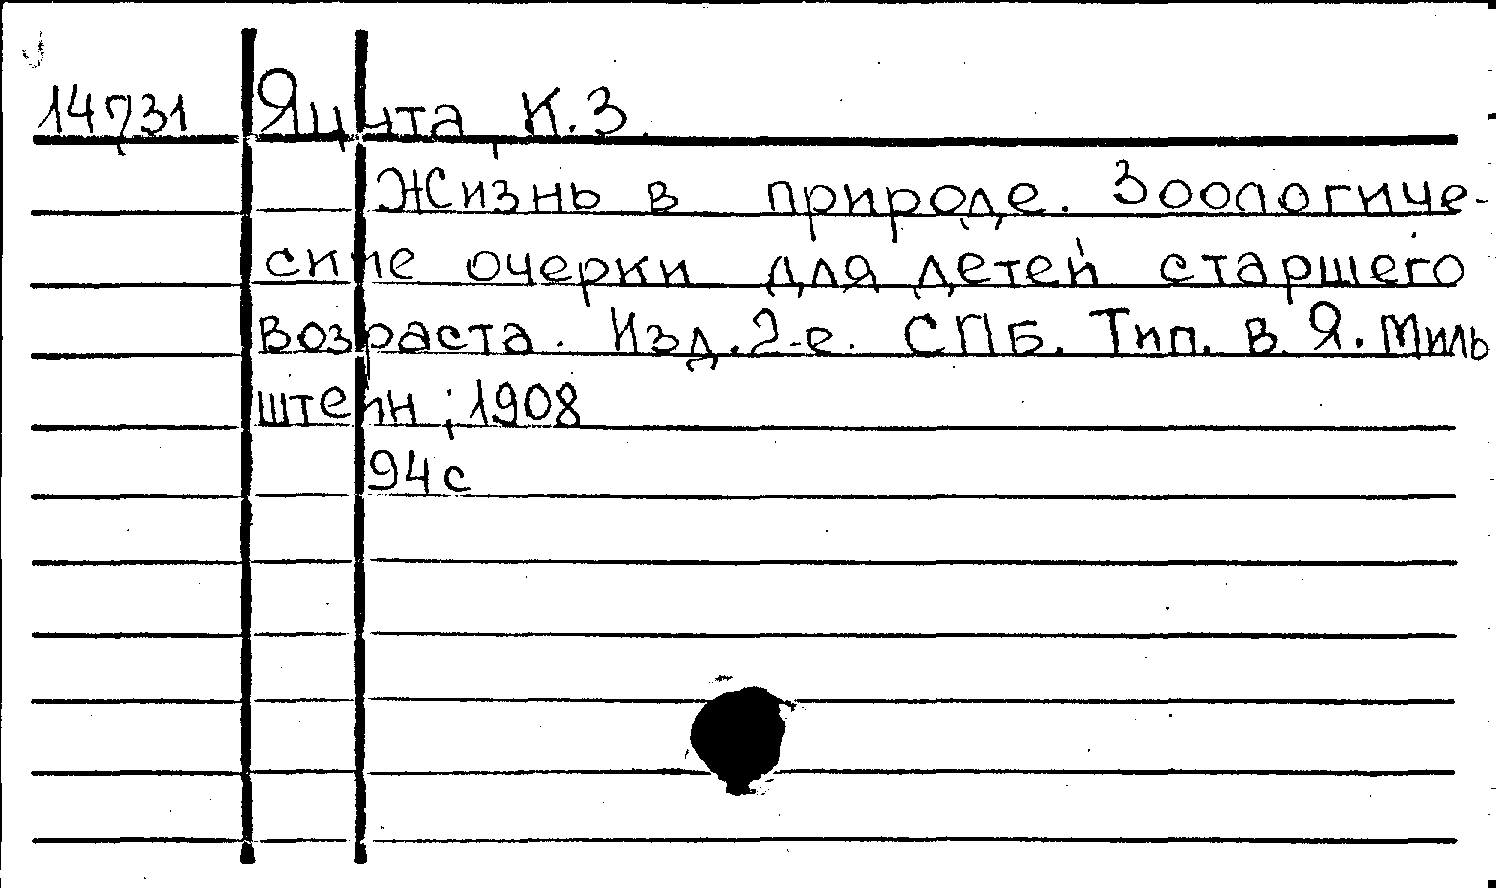 14731 Яцута, К.З.
Жизнь в природе. Зоологиче-
ские очерки для детей старшего
возраста. Изд. 2-е. СПБ. Тип. В. Я. Миль
штейн, 1908
94 с